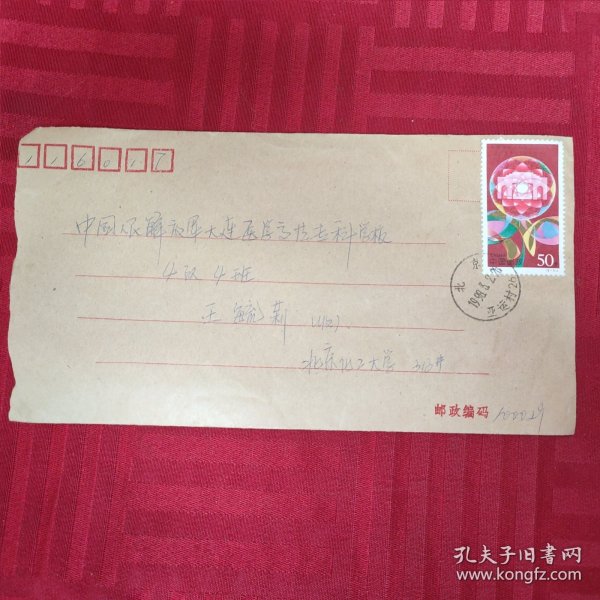 116017
50
中国人民解放军大连医学高等专科学校
北京
1998.8.2
亚运村
4队4班
王毓新 (收)
北京化工大学
邮政编码 100029
孔夫子旧书网
www.kongfz.com